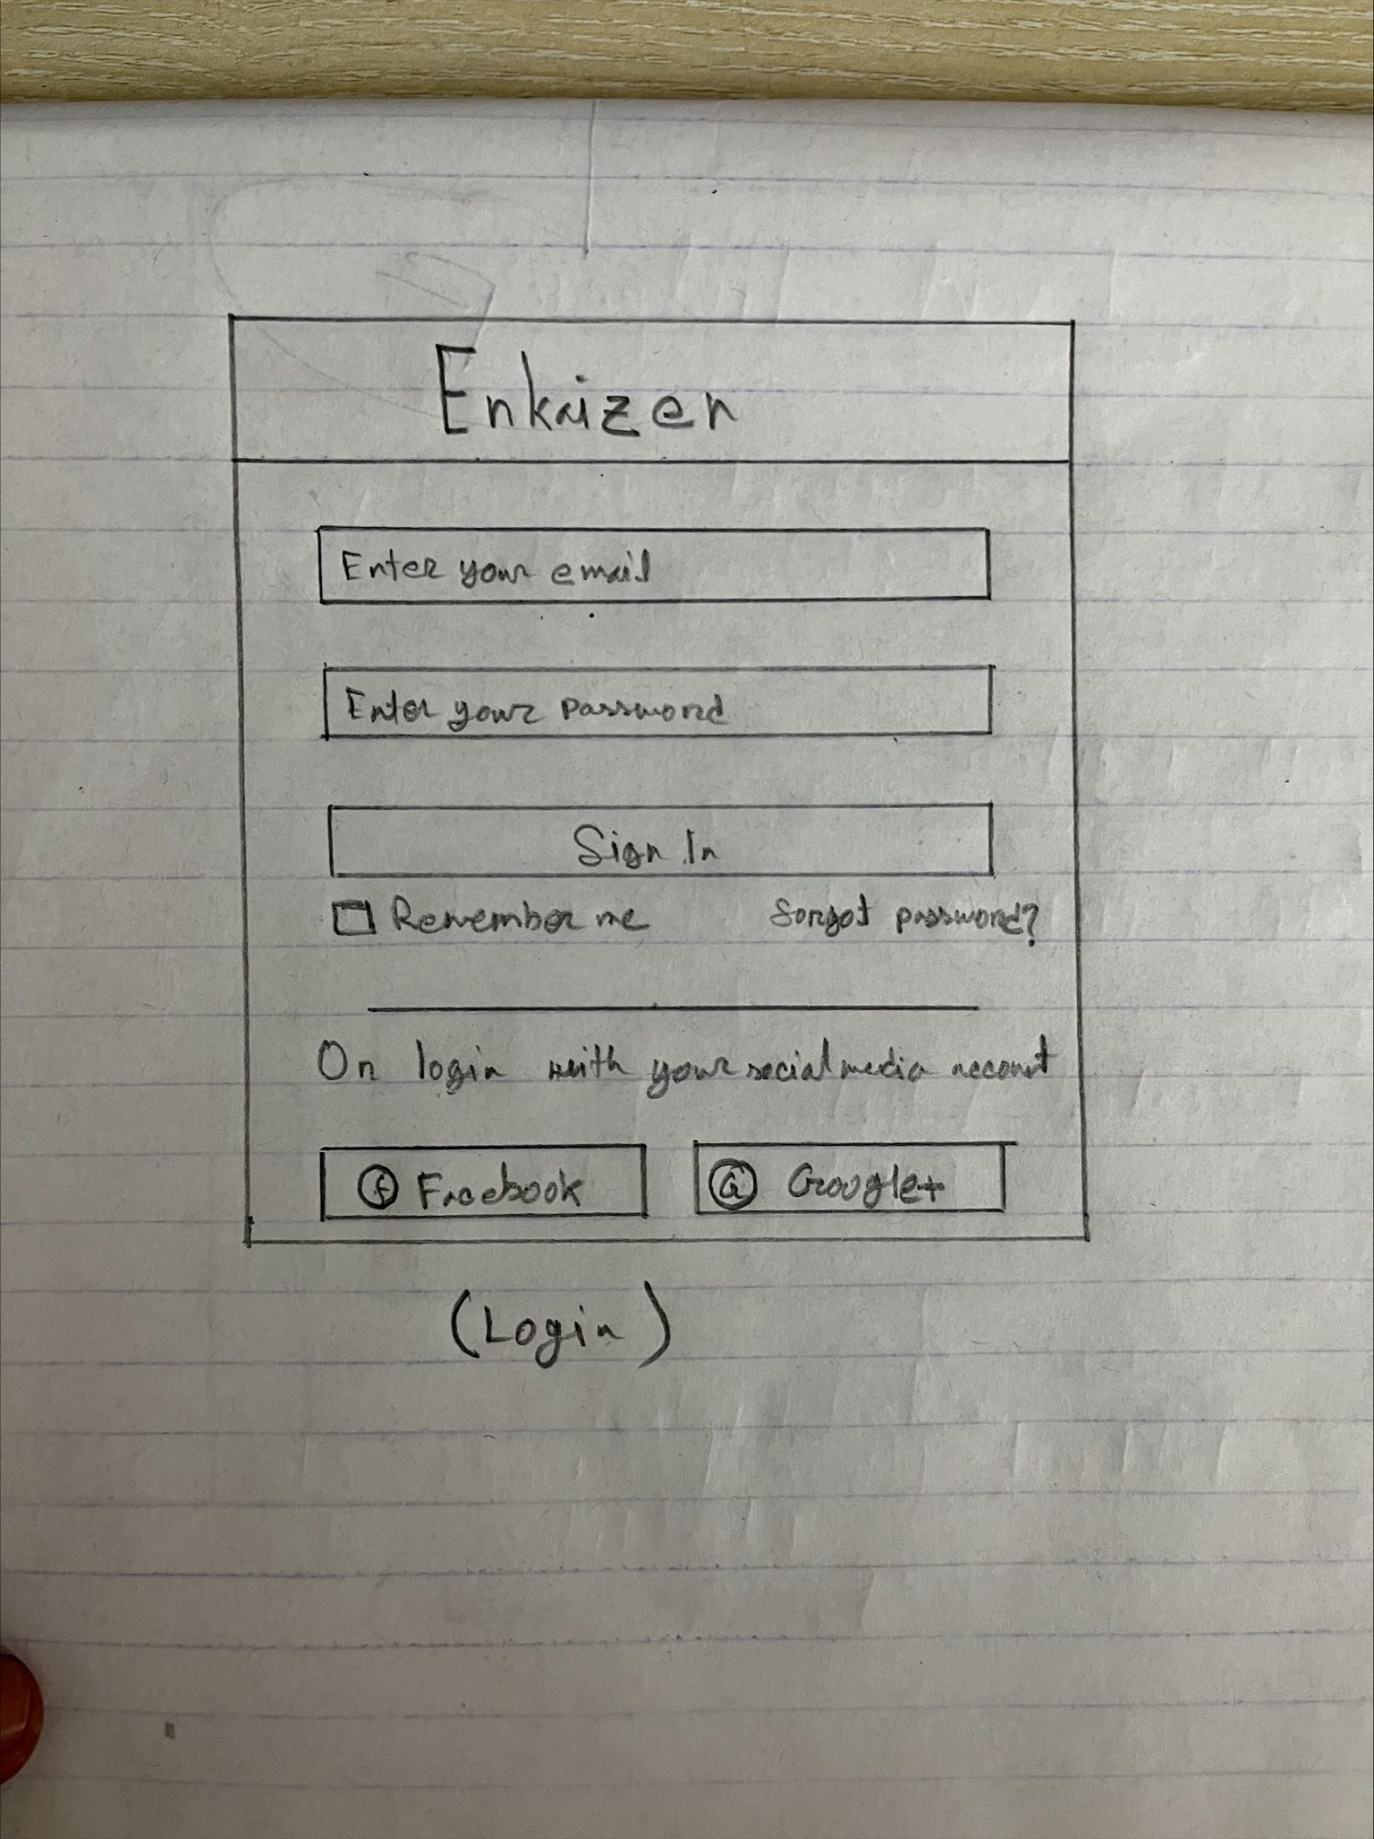 Enkaizen
Enter your email
Enter your password
Sign In
Remember me forgot password?
On login with your social media account
f Facebook G Google+
(Login)